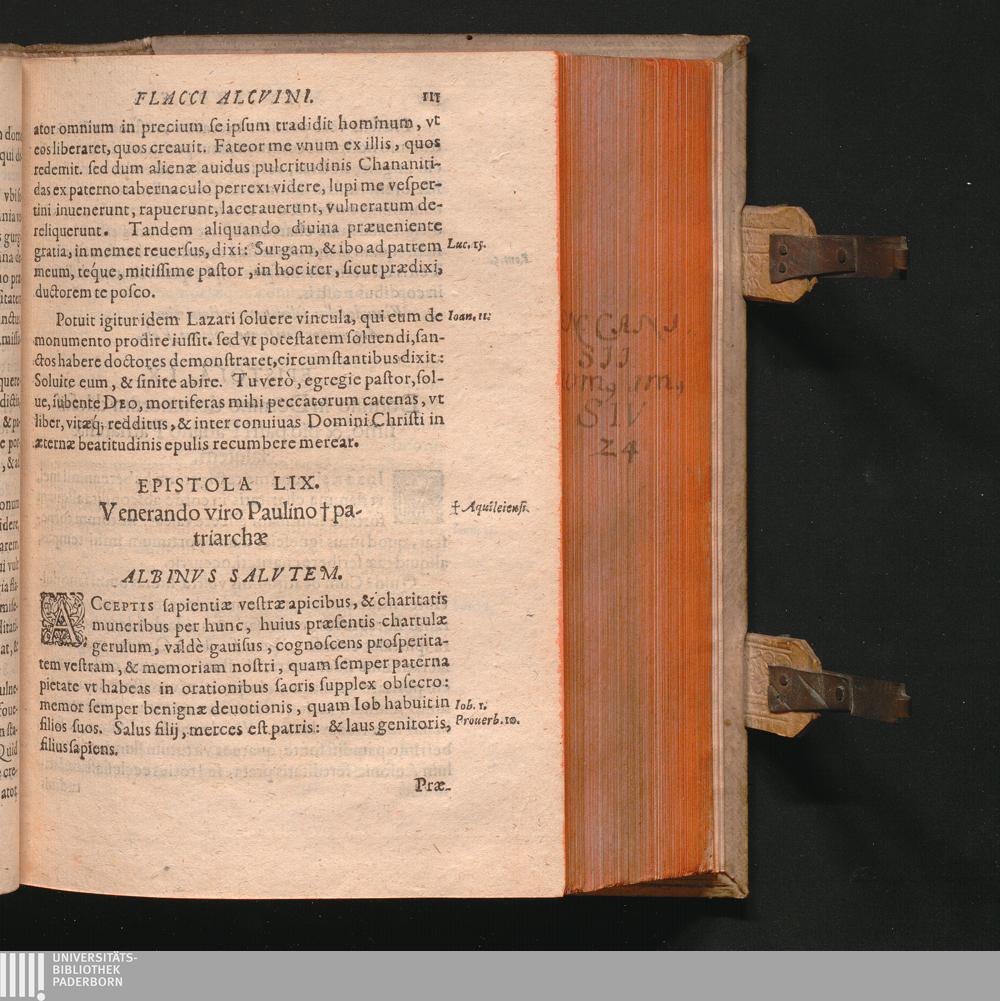 FLACCI ALCVINI. 111
ator omnium in precium se ipsum tradidit hominum, vt
eos liberaret, quos creauit. Fateor me vnum ex illis, quos
redemit. sed dum alienæ auidus pulcritudinis Chananiti-
das ex paterno tabernaculo perrexi videre, lupi me vesper-
tini inuenerunt, rapuerunt, lacerauerunt, vulneratum de-
reliquerunt. Tandem aliquando diuina præueniente
gratia, in memet reuersus, dixi: Surgam, & ibo ad patrem
Luc. 15.
meum, teque, mitissime pastor, in hoc iter, sicut prædixi,
ductorem te posco.
Potuit igitur idem Lazari soluere vincula, qui eum de
Ioan. 11:
monumento prodire iussit. sed vt potestatem soluendi, san-
ctos habere doctores demonstraret, circumstantibus dixit:
Soluite eum, & sinite abire. Tu verò, egregie pastor, sol-
ue, iubente DEO, mortiferas mihi peccatorum catenas, vt
liber, vitæq́; redditus, & inter conuiuas Domini Christi in
æternæ beatitudinis epulis recumbere merear.
EPISTOLA LIX.
Venerando viro Paulino † pa-
† Aquileiensi.
triarchæ
ALBINVS SALVTEM.
ACCEPTIS sapientiæ vestræ apicibus, & charitatis
muneribus per hunc, huius præsentis chartulæ
gerulum, valdè gauisus, cognoscens prosperita-
tem vestram, & memoriam nostri, quam semper paterna
pietate vt habeas in orationibus sacris supplex obsecro:
memor semper benignæ deuotionis, quam Iob habuit in
Iob. 1.
filios suos. Salus filij, merces est patris: & laus genitoris,
Prouerb. 10.
filius sapiens.
Præ-
SII
SIV
24
UNIVERSITÄTS-
BIBLIOTHEK
PADERBORN